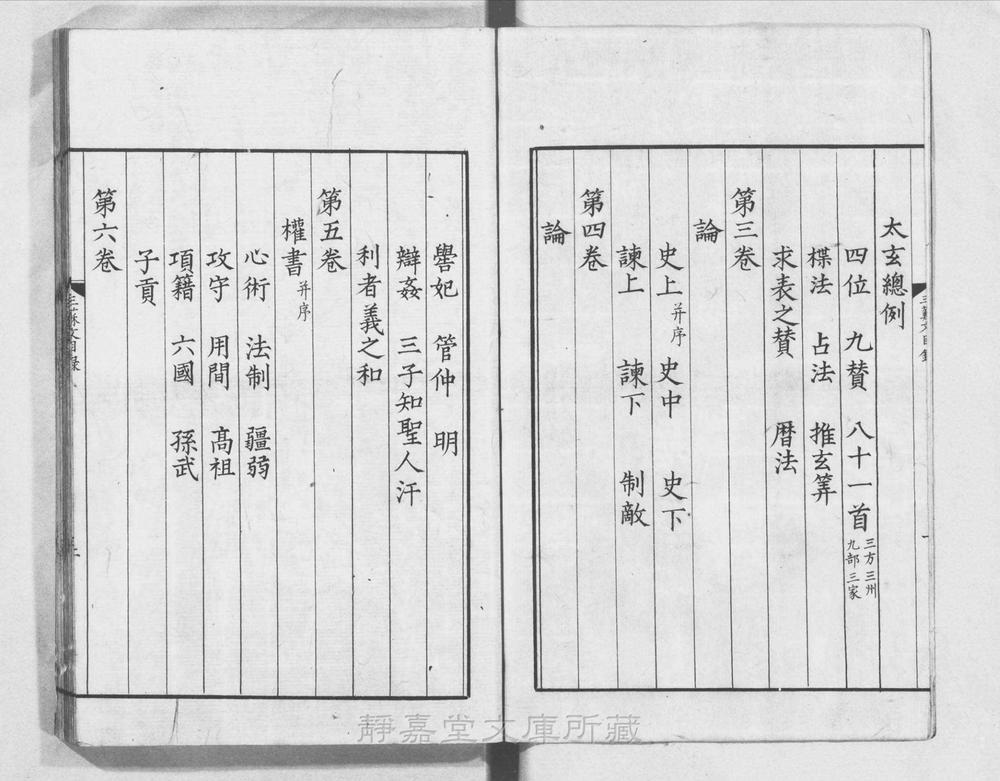 太玄總例
四位 九賛 八十一首 三方三州九部三家
楪法 占法 推玄筭
求表之賛 曆法
第三卷
論
史上并序 史中 史下
諫上 諫下 制敵
第四卷
論
嚳妃 管仲 明
辯姦 三子知聖人汙
利者義之和
第五卷
權書并序
心術 法制 彊弱
攻守 用間 髙祖
項籍 六國 孫武
子貢
第六卷
三蘇文目錄
靜嘉堂文庫所藏